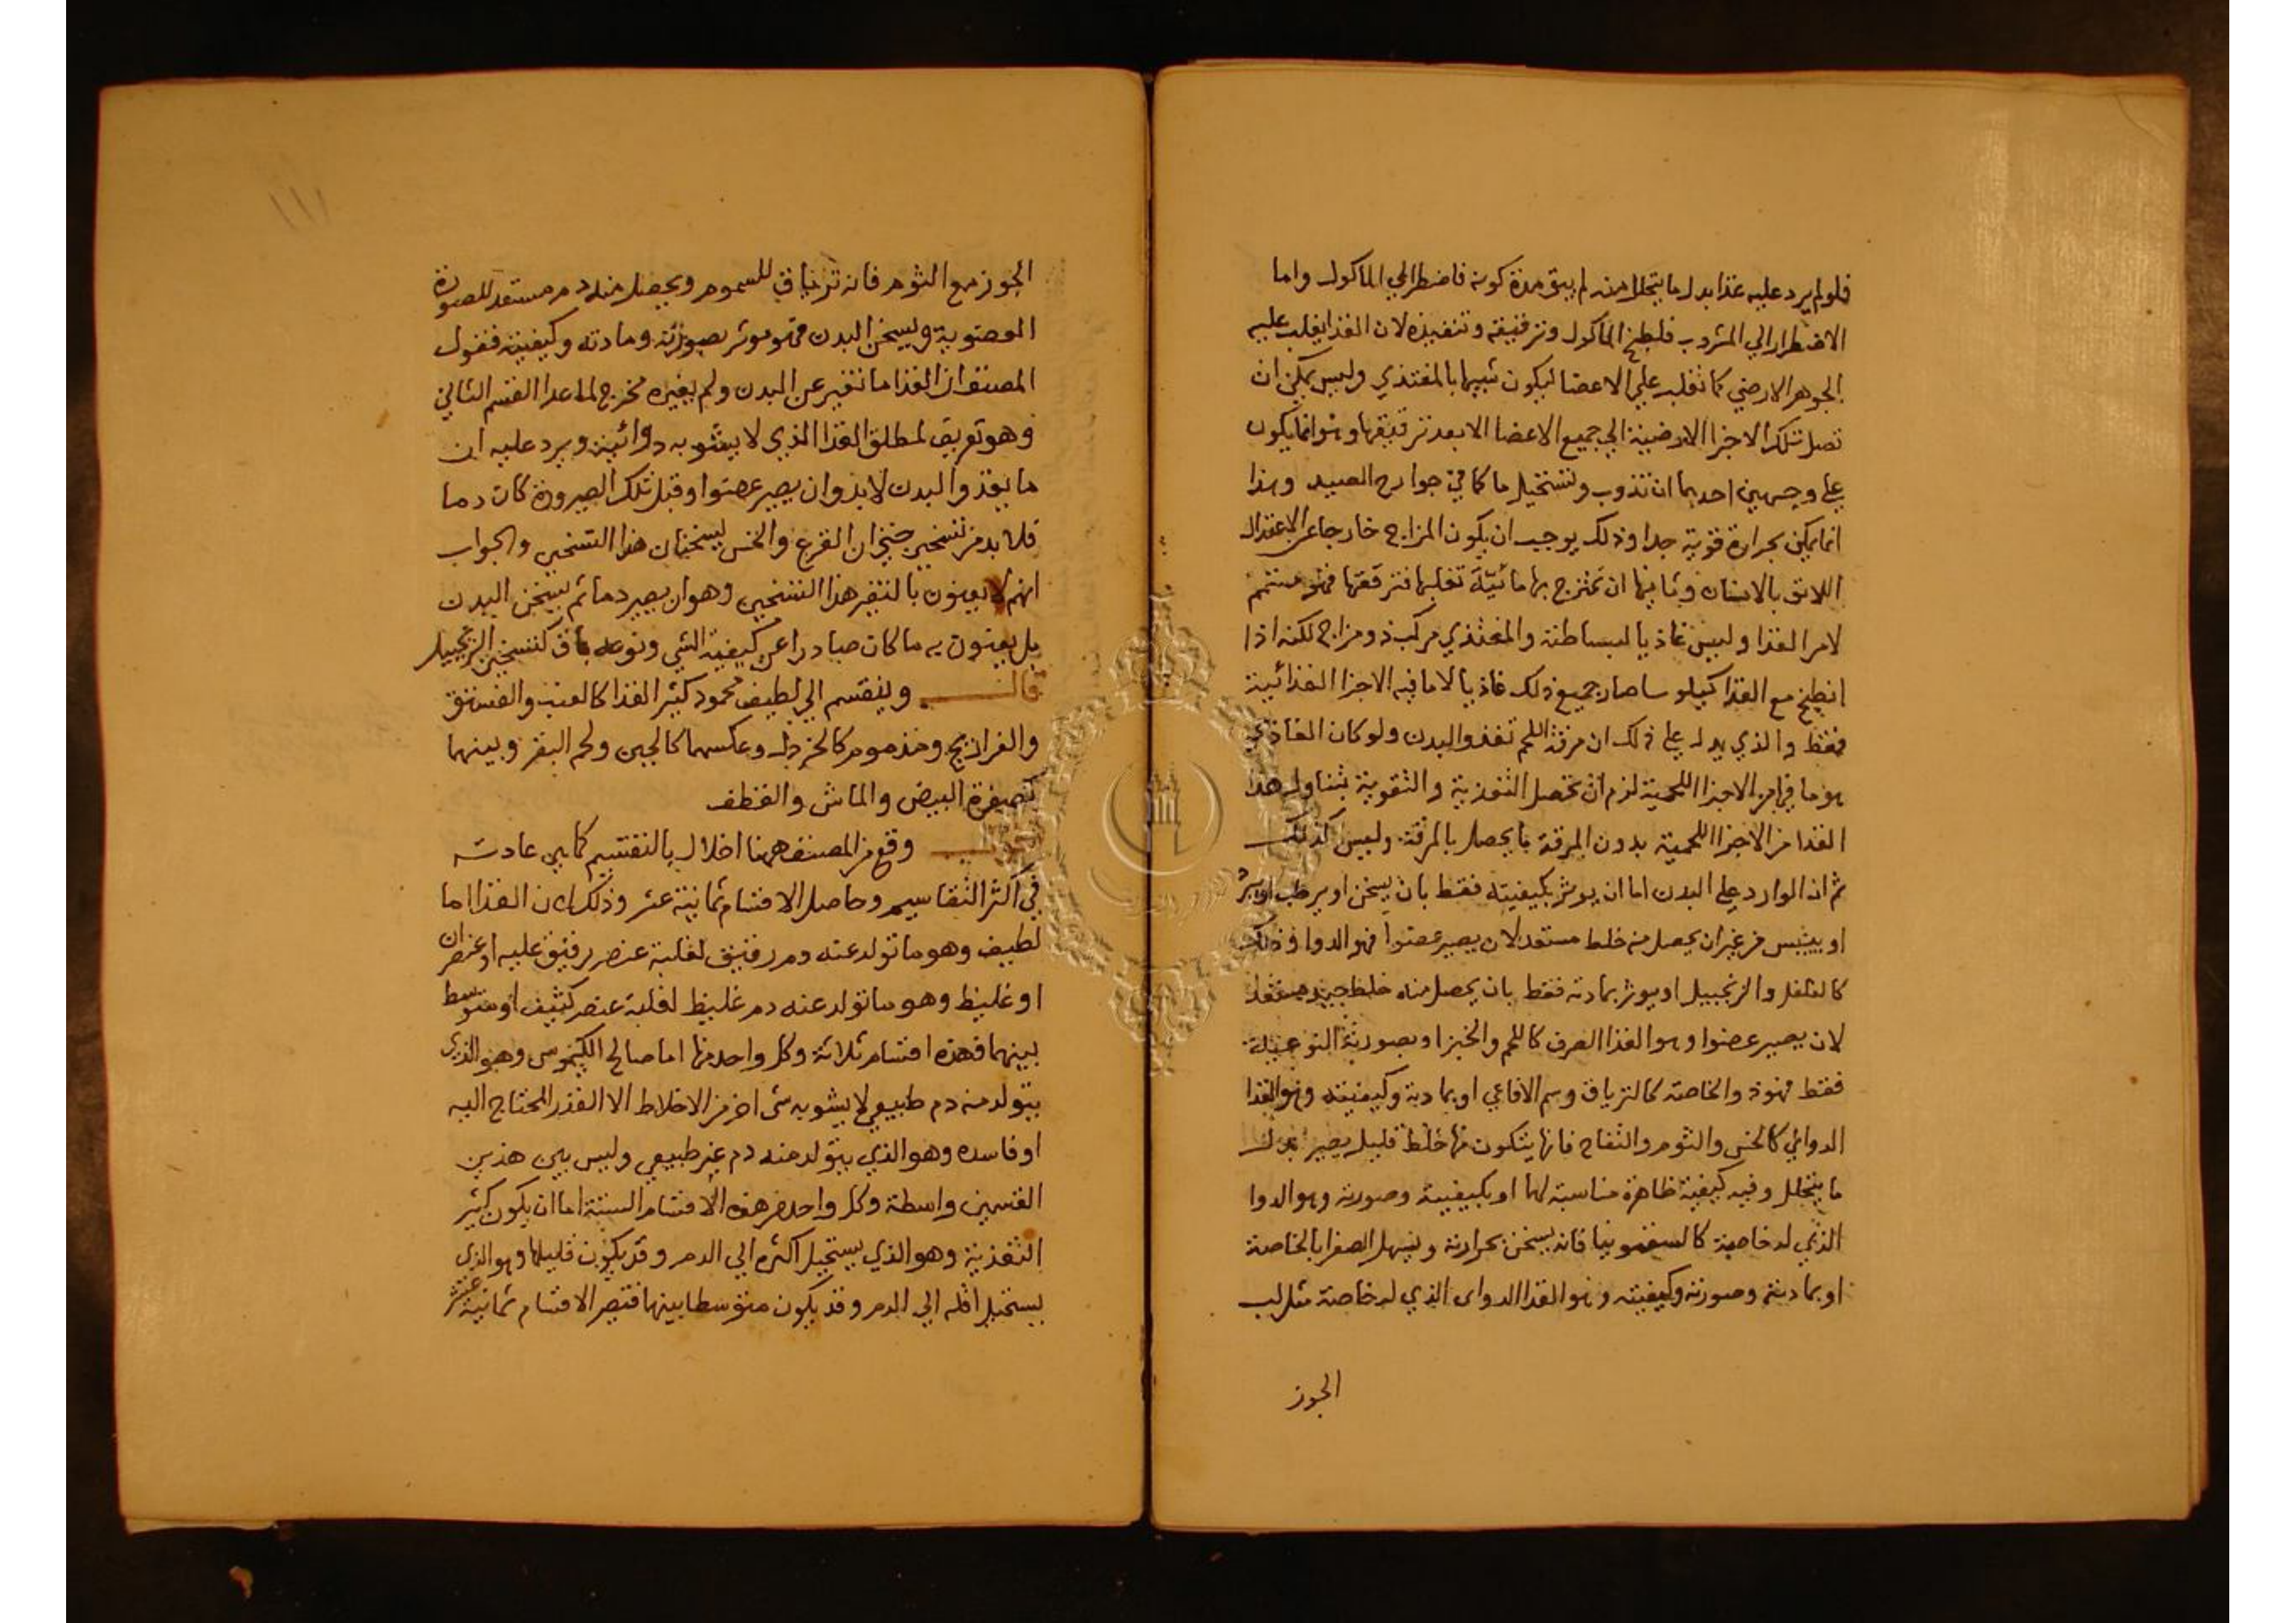 فلولم يرد عليه غذا بدل ما يتحلل منه لم يبق مدة كونه فاضطر الي الماكول واما
الاضطرار الي المشروب فلطبخ الماكول وترقيقه وتنفيذه لان الغذا يغلب عليه
الجوهر الارضي كما تغلب علي الاعضا ليكون شبيها بالمغتذي وليس يمكن ان
تصل تلك الاجزا الارضية الي جميع الاعضا الا بعد ترقيقها وهو انما يكون
علي وجهين احدهما ان تذوب وتستحيل ما كما في جوارح الصيد وهذا
انما يمكن بحرارة قوية جدا وذلك يوجب ان يكون المزاج خارجا عن الاعتدال
اللايق بالانسان وثانيها ان تمتزج بها مائيّة تغلبها فترققها فهو متمم
لامر الغذا وليس غاذيا لبساطته والمغتذي مركب ذو مزاج لكنه اذا
انطبخ مع الغذا كيلوسا صار جميع ذلك غاذيا لا ما فيه الاجزا الغذائية
فقط والذي يدل علي ذلك ان مرقة اللحم تغذو البدن ولو كان الغاذي
هو ما فيها من الاجزا اللحمية لزم ان تحصل التغذية والتقوية بتناول هذا
الغذا من الاجزا اللحمية بدون المرقة ما يحصل بالمرقة وليس كذلك
ثم ان الوارد علي البدن اما ان يوثر بكيفيته فقط بان يسخن او يرطب او يبرد
او ييبس من غير ان يحصل منه خلط مستعد لان يصير عضوا فهو الدوا وذلك
كالفلفل والزنجبيل او يوثر بمادته فقط بان يحصل منه خلط جيد مستعد
لان يصير عضوا وهو الغذا الصرف كاللحم والخبز او بصورته النوعية
فقط فهو ذو الخاصة كالترياق وسم الافاعي او بمادته وكيفيته وهو الغذا
الدوائي كالخس والثوم والتفاح فانها يتكون منها خلط قليل يصير بدل
ما يتحلل وفيه كيفية ظاهرة مناسبة لها او بكيفيته وصورته وهو الدوا
الذي له خاصية كالسقمونيا فانه يسخن بحرارته ويسهل الصفرا بالخاصة
او بمادته وصورته وكيفيته وهو الغذا الدواى الذي له خاصة مثل لب
الجوز
١١١
الجوز مع الثوم فانه ترياق للسموم ويحصل منه دم مستعد للصورة
العضوية ويسخن البدن فهو موثر بصورته ومادته وكيفيته فقول
المصنف ان الغذا ما تغير عن البدن ولم يغيره مخرج لما عدا القسم الثاني
وهو تعريف لمطلق الغذا الذي لا يشوبه دوائية ويرد عليه ان
ما يغذو البدن لا بد وان يصير عضوا وقبل تلك الصيرورة كان دما
فلا بد من تسخين حتي ان القرع والخس يسخنان هذا التسخين والجواب
انهم لا يعنون بالتغير هذا التسخين وهو ان يصير دما ثم يسخن البدن
بل يعنون به ما كان صادرا عن كيفية الشي ونوعه باق كتسخين الزنجبيل
قال وينقسم الي لطيف محمود كثير الغذا كالعنب والفستق
والفراريج ومذموم كالخردل وعكسهما كالجبن ولحم البقر وبينهما
كصفرة البيض والماش والقطف
وقع من المصنف ههنا اخلال بالتقسيم كما هي عادته
في اكثر التقاسيم وحاصل الاقسام ثمانية عشر وذلك لان الغذا اما
لطيف وهو ما تولد عنه دم رقيق لغلبة عنصر رقيق عليه او عنصران
او غليظ وهو ما تولد عنه دم غليظ لغلبة عنصر كثيف او متوسط
بينهما فهذه اقسام ثلاثة وكل واحد منها اما صالح الكيموس وهو الذي
يتولد منه دم طبيعي لا يشوبه شي اخر من الاخلاط الا القدر المحتاج اليه
او فاسده وهو الذي يتولد منه دم غير طبيعي وليس بين هذين
القسمين واسطة وكل واحد من هذه الاقسام الستة اما ان يكون كثير
التغذية وهو الذي يستحيل اكثره الي الدم وقد يكون قليلها وهو الذي
يستحيل اقله الي الدم وقد يكون متوسطا بينها فتصير الاقسام ثمانية عشر